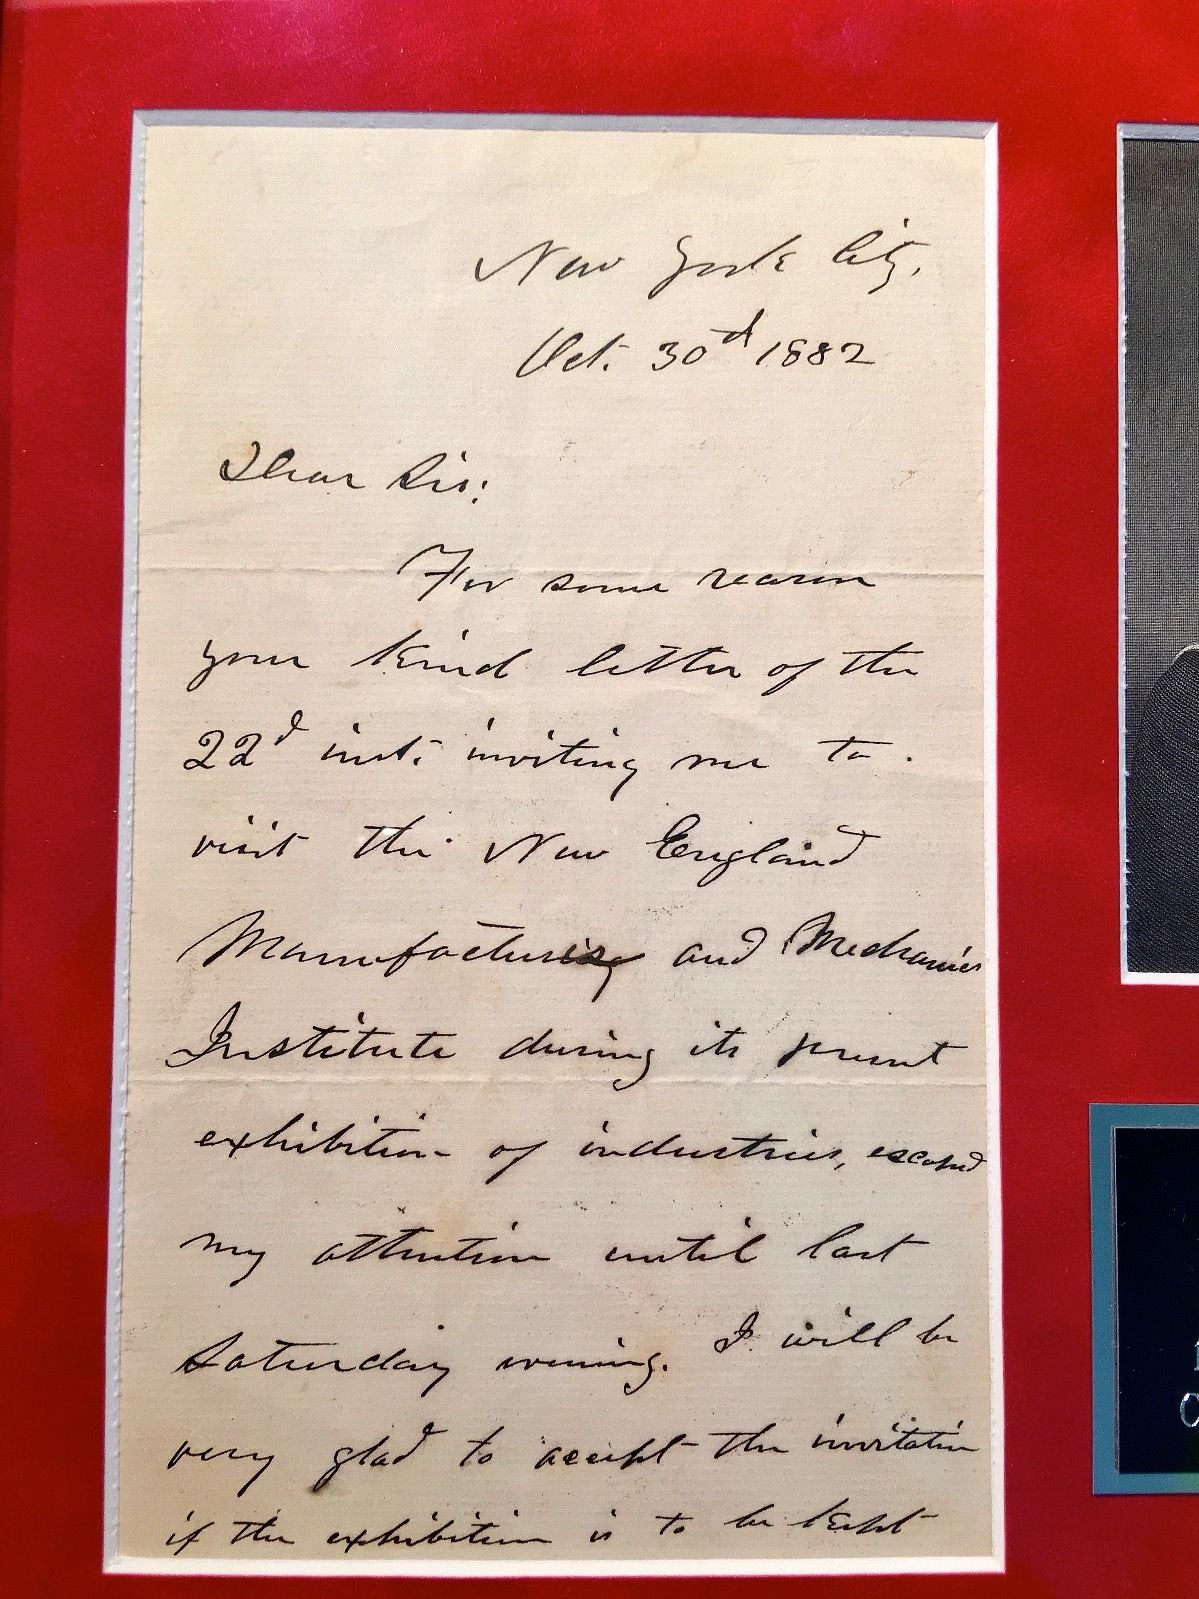 New York City.
Oct. 30th 1882
Dear Sir:
For some reason
your kind letter of the
22d inst. inviting me to
visit the New England
Manufacturing and Mechanics
Institute during its present
exhibition of industries, escaped
my attention until last
Saturday evening. I will be
very glad to accept the invitation
if the exhibition is to be kept